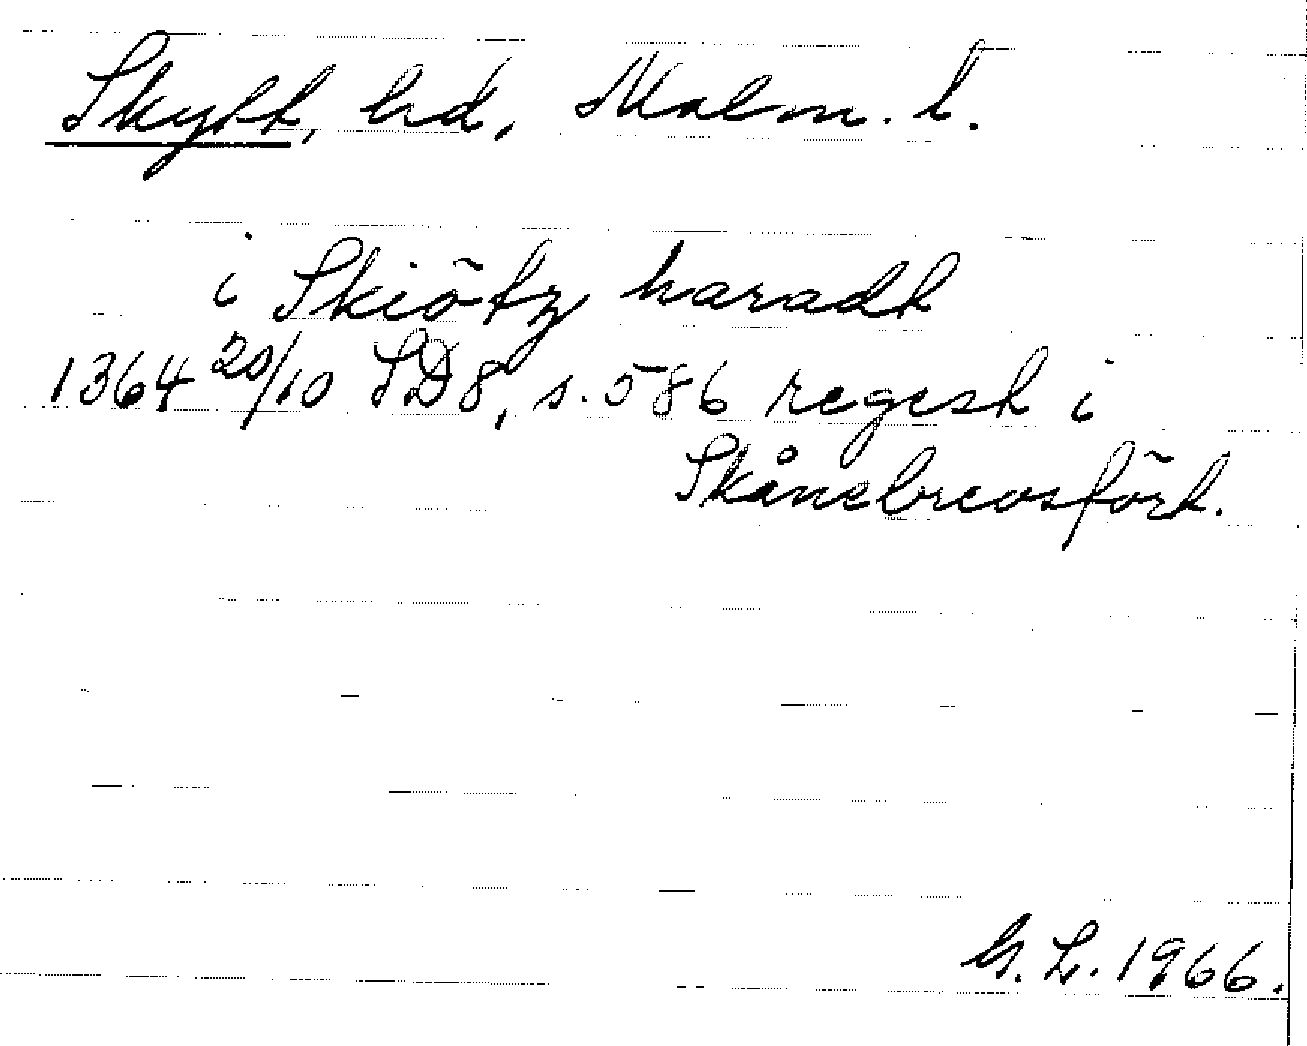 Skytt, hd, Malm. l.
i Skiötz haradt
1364 20/10 SD8, s. 586 regest i
Skånebrevsfört.
G. L. 1966.